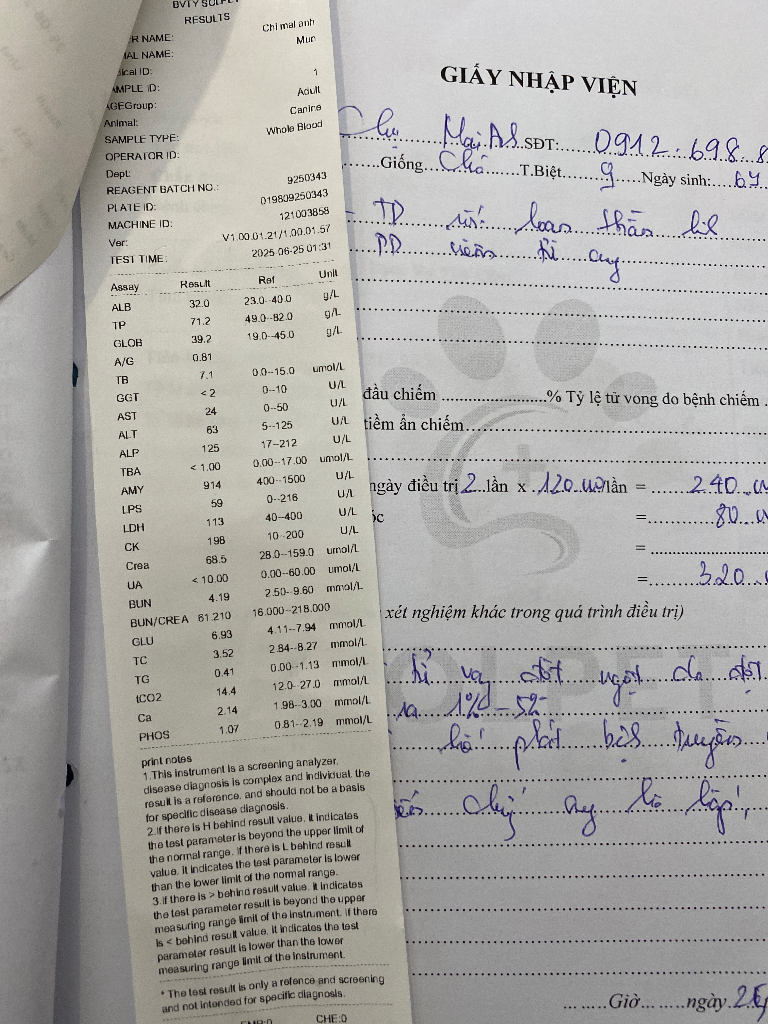 RESULTS
NAME: Chi mai anh
NAME: Mun
ID:
SAMPLE ID: 1
AGEGroup: Adult
Animal: Canine
SAMPLE TYPE: Whole Blood
OPERATOR ID:
Dept:
REAGENT BATCH NO.: 9250343
PLATE ID: 019809250343
MACHINE ID: 121003858
Ver: V1.00.01.21/1.00.01.57
TEST TIME: 2025-06-25 01:31
Assay Result Ref Unit
ALB 32.0 23.0--40.0 g/L
TP 71.2 49.0--82.0 g/L
GLOB 39.2 19.0--45.0 g/L
A/G 0.81
TB 7.1 0.0--15.0 umol/L
GGT < 2 0--10 U/L
AST 24 0--50 U/L
ALT 63 5--125 U/L
ALP 125 17--212 U/L
TBA < 1.00 0.00--17.00 umol/L
AMY 914 400--1500 U/L
LPS 59 0--216 U/L
LDH 113 40--400 U/L
CK 198 10--200 U/L
Crea 68.5 28.0--159.0 umol/L
UA < 10.00 0.00--60.00 umol/L
BUN 4.19 2.50--9.60 mmol/L
BUN/CREA 61.210 16.000--218.000
GLU 6.93 4.11--7.94 mmol/L
TC 3.52 2.84--8.27 mmol/L
TG 0.41 0.00--1.13 mmol/L
tCO2 14.4 12.0--27.0 mmol/L
Ca 2.14 1.98--3.00 mmol/L
PHOS 1.07 0.81--2.19 mmol/L
print notes
1.This instrument is a screening analyzer,
disease diagnosis is complex and individual, the
result is a reference, and should not be a basis
for specific disease diagnosis.
2.If there is H behind result value, it indicates
the test parameter is beyond the upper limit of
the normal range. If there is L behind result
value, it indicates the test parameter is lower
than the lower limit of the normal range.
3.If there is > behind result value, it indicates
the test parameter result is beyond the upper
measuring range limit of the instrument. If there
is < behind result value, it indicates the test
parameter result is lower than the lower
measuring range limit of the instrument.
* The test result is only a refence and screening
and not intended for specific diagnosis.
CHE:0
GIẤY NHẬP VIỆN
SĐT: 0912.698.8
Giống Chó T.Biệt g Ngày sinh:
đầu chiếm % Tỷ lệ tử vong do bệnh chiếm
tiềm ẩn chiếm
ngày điều trị 2 lần x 120.000/lần = 240
= 80
=
= 320
xét nghiệm khác trong quá trình điều trị)
đột ngột do đột
1% - 5%
phát bệnh truyền
Giờ ngày 25